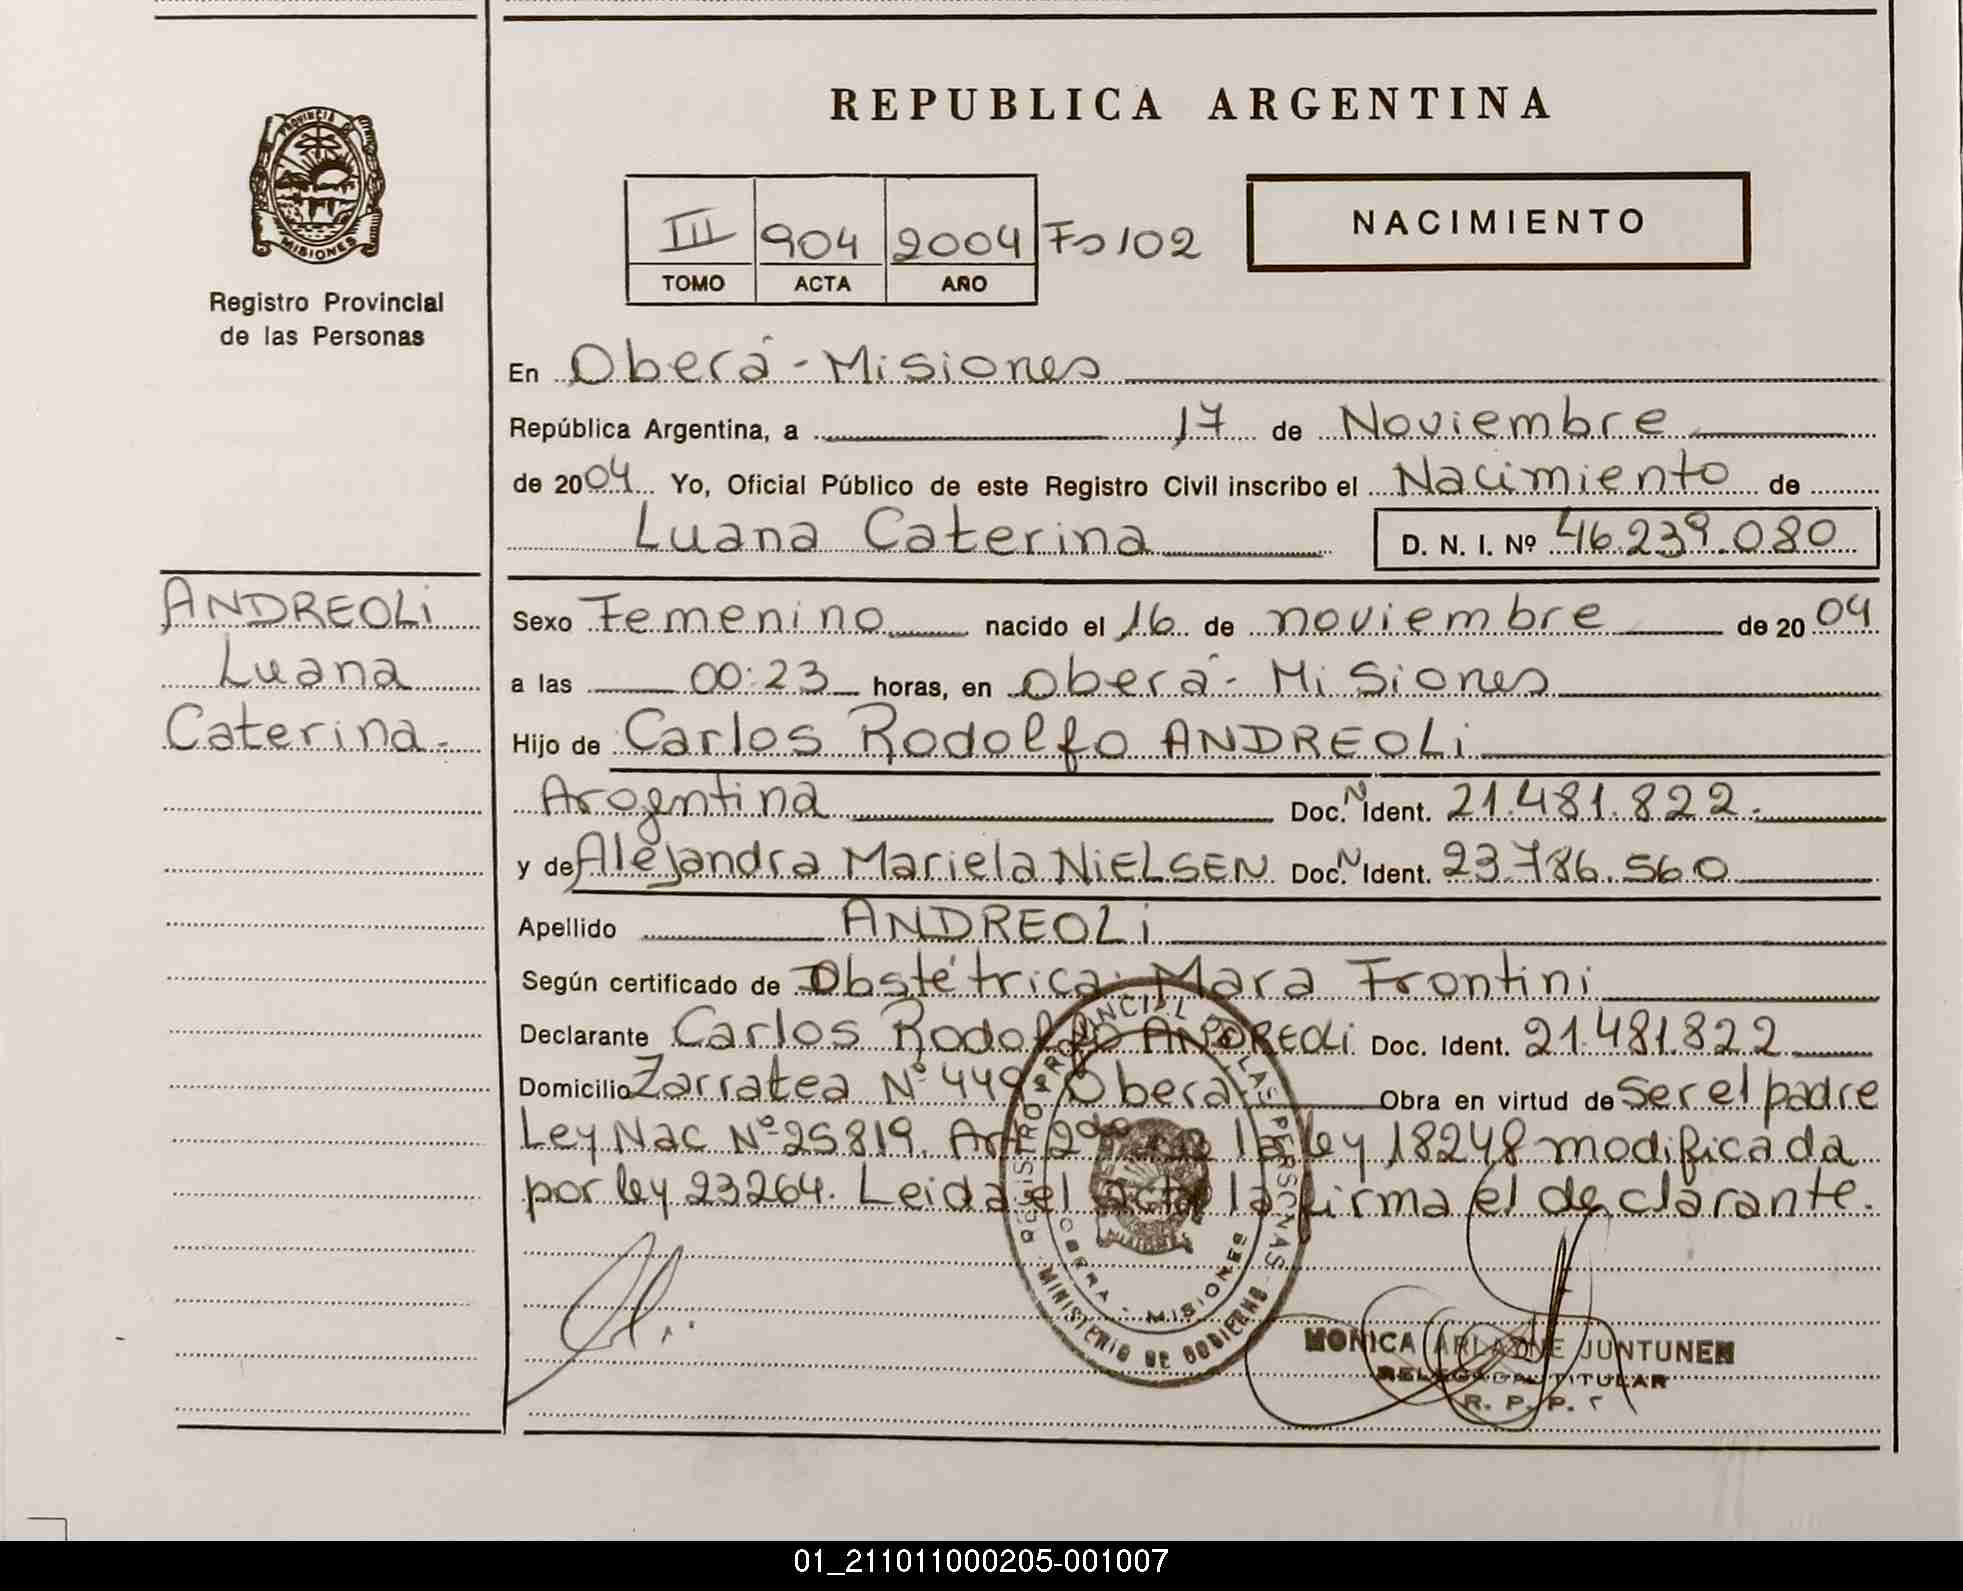 PROVINCIA DE
MISIONES
Registro Provincial
de las Personas
ANDREOLi
Luana
Caterina.-
REPUBLICA ARGENTINA
III 904 2004 Fo 102
TOMO ACTA AÑO
NACIMIENTO
En Oberá - Misiones
República Argentina, a 17 de Noviembre
de 2004 Yo, Oficial Público de este Registro Civil inscribo el Nacimiento de
Luana Caterina D. N. I. Nº 46.239.080
Sexo Femenino nacido el 16 de noviembre de 2004
a las 00:23 horas, en Oberá - Misiones
Hijo de Carlos Rodolfo ANDREOLi
Argentina Doc. N Ident. 21.481.822.-
y de Alejandra Mariela NiELSEN Doc. N Ident. 23.786.560
Apellido ANDREOLi
Según certificado de Obstétrica: Mara Frontini
Declarante Carlos Rodolfo ANDREOLi Doc. Ident. 21.481.822
Domicilio Zarratea Nº 449 Oberá Obra en virtud de Ser el padre
Ley Nac Nº 25819. Art 2º la ley 18248 modificada
por ley 23264. Leida el acta la firma el declarante.
REGISTRO PROVINCIAL DE LAS PERSONAS
MINISTERIO DE GOBIERNO
OBERA - MISIONES
MONICA ARIADNE JUNTUNEN
DELEGADA TITULAR
R. P. P.
01_211011000205-001007